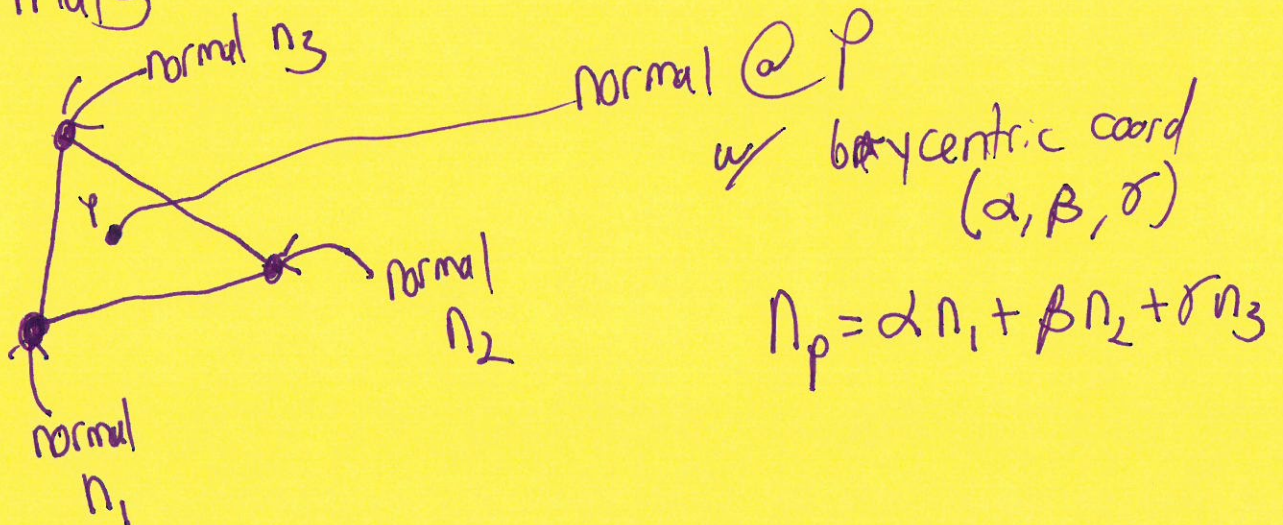 normal n3
normal @ P
w/ barycentric coord
(α, β, γ)
P
normal
n2
np = αn1 + βn2 + γn3
normal
n1